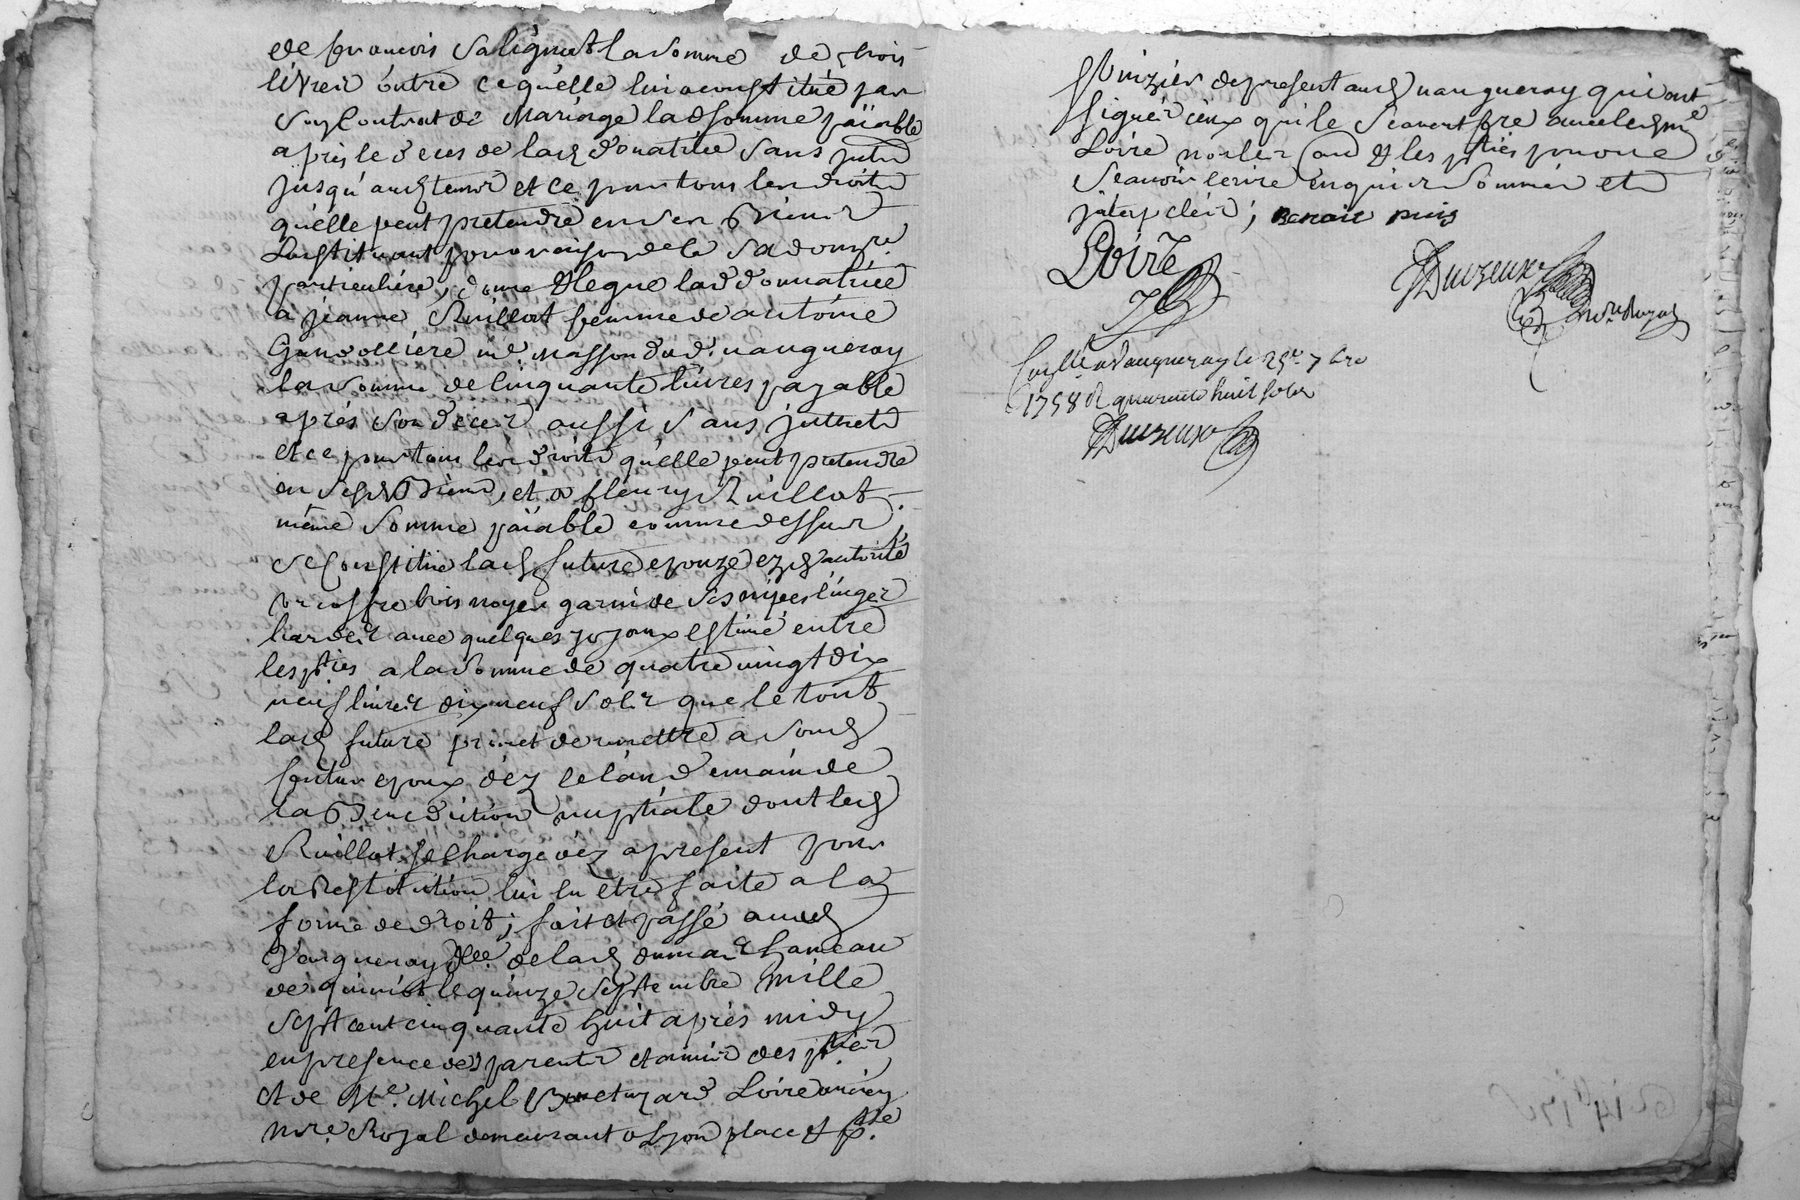 de francois Salignat la somme de trois
livres outre ce quelle lui a constitué par
son Contrat de Mariage lad somme païable
après le deces de lad donatrice Sans jnterets
jusqu'aud tems et ce pour tous les droits
quélle peut pretendre en ses Biens
L'instituant pour raison de ce Sa
particulière, donne & legue lad donnatrice
a jeanne Ruillat femme de antoine
md. Masson dud. vaugneray
la somme de Cinquante livres payable
aprés son deces aussi Sans jnterets
et ce pour tous les droits quélle peut pretendre
en Sesd Biens, et a fleury Ruillat
même Somme païable comme dessus,
Se Constitue lad future epouze ezd autorités
un coffre bois noyer garni de Ses nipes linges
hardes avec quelques joyaux estimé entre
les pties a la somme de quatre vingt dix
neuf livres dix neuf Sols que le tout
lad future promet de remettre a Sond
futur epoux déz le landemain de
la Benediction nuptiale dont led
Ruillat Se charge déz apresent pour
la Restitution lui en etre faite a la
forme de droit; fait et passé aud
Vaugneray dlle de lad hameau
de le quinze Septembre Mille
Sept cent cinquante huit après midy
en presence des parents et amis des pties
et de Me. Michel Loire
nore. Royal demeurant a Lyon place & psse
St Nizier de present aud vaugneray qui ont
Signés ceux qui le Scavent fre avec led me
Loire non les and & les pties pour ne
Scavoir ecrire enquis Sommés et
jnterpelés; Benoit puis
Loire

not. Royal
Conlle a Vaugneray le 25e. 7bre
1758 R quarante huit sols